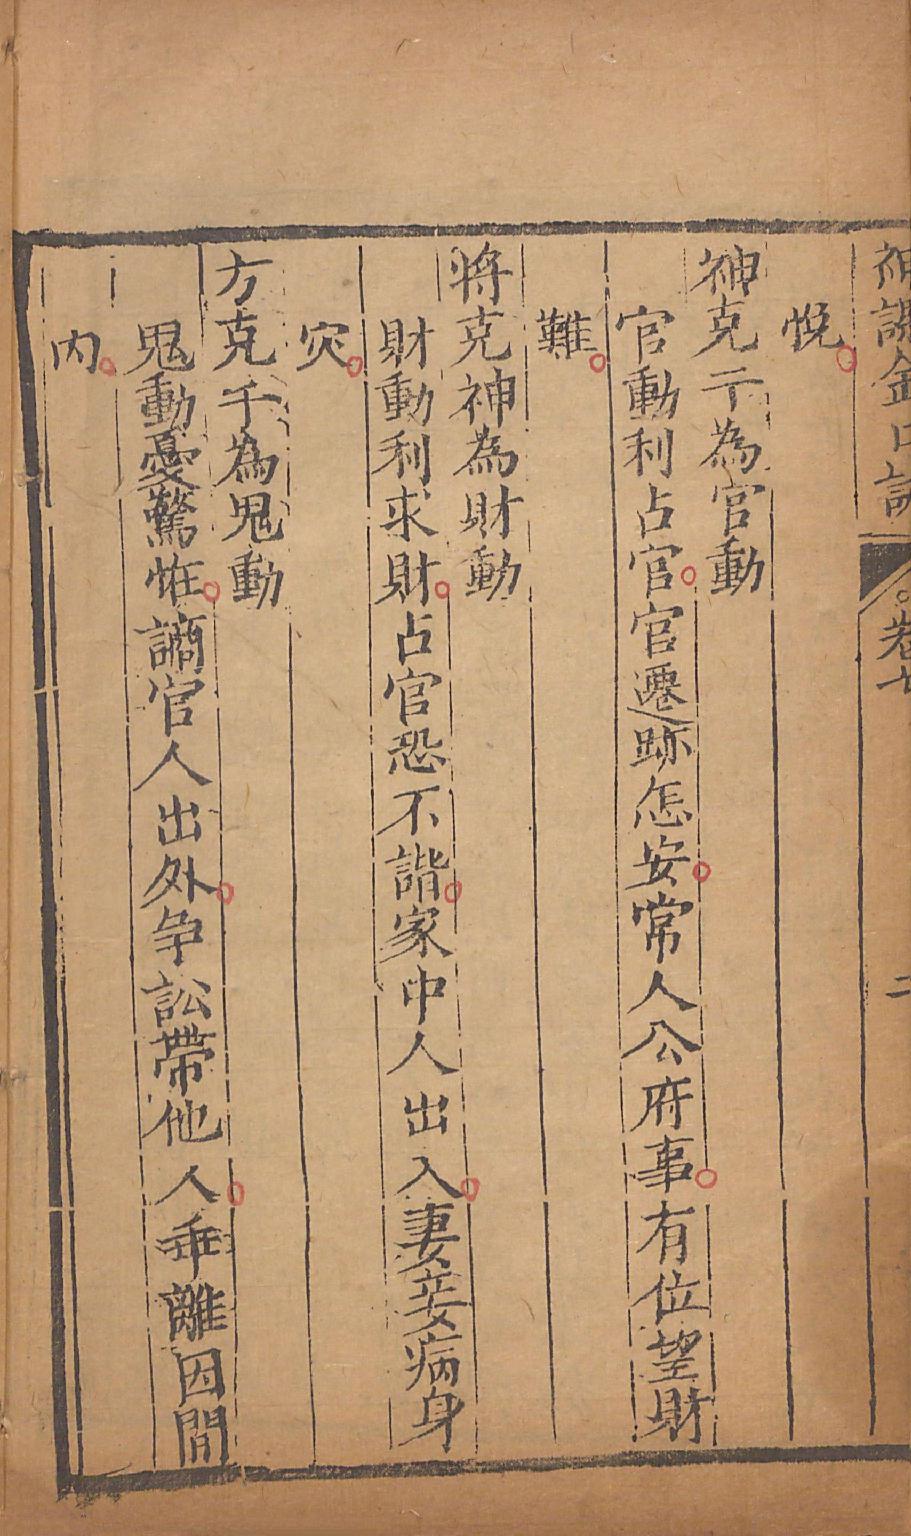 神課金口訣 卷七 二
悅
神克干為官動
官動利占官官遷跡怎安常人公府事有位望財
難
將克神為財動
財動利求財占官恐不諧家中人出入妻妾病身
灾
方克干為鬼動
鬼動憂驚恠謫官人出外争訟帶他人乖離因間
内